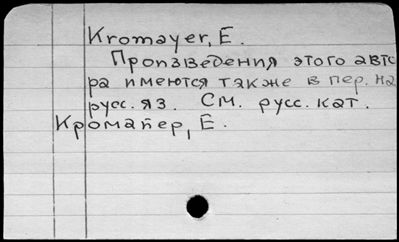 Kromayer, E.
Произведения этого авто
ра имеются также в пер. на
русс. яз. См. русс. кат.
Кромайер, Е.